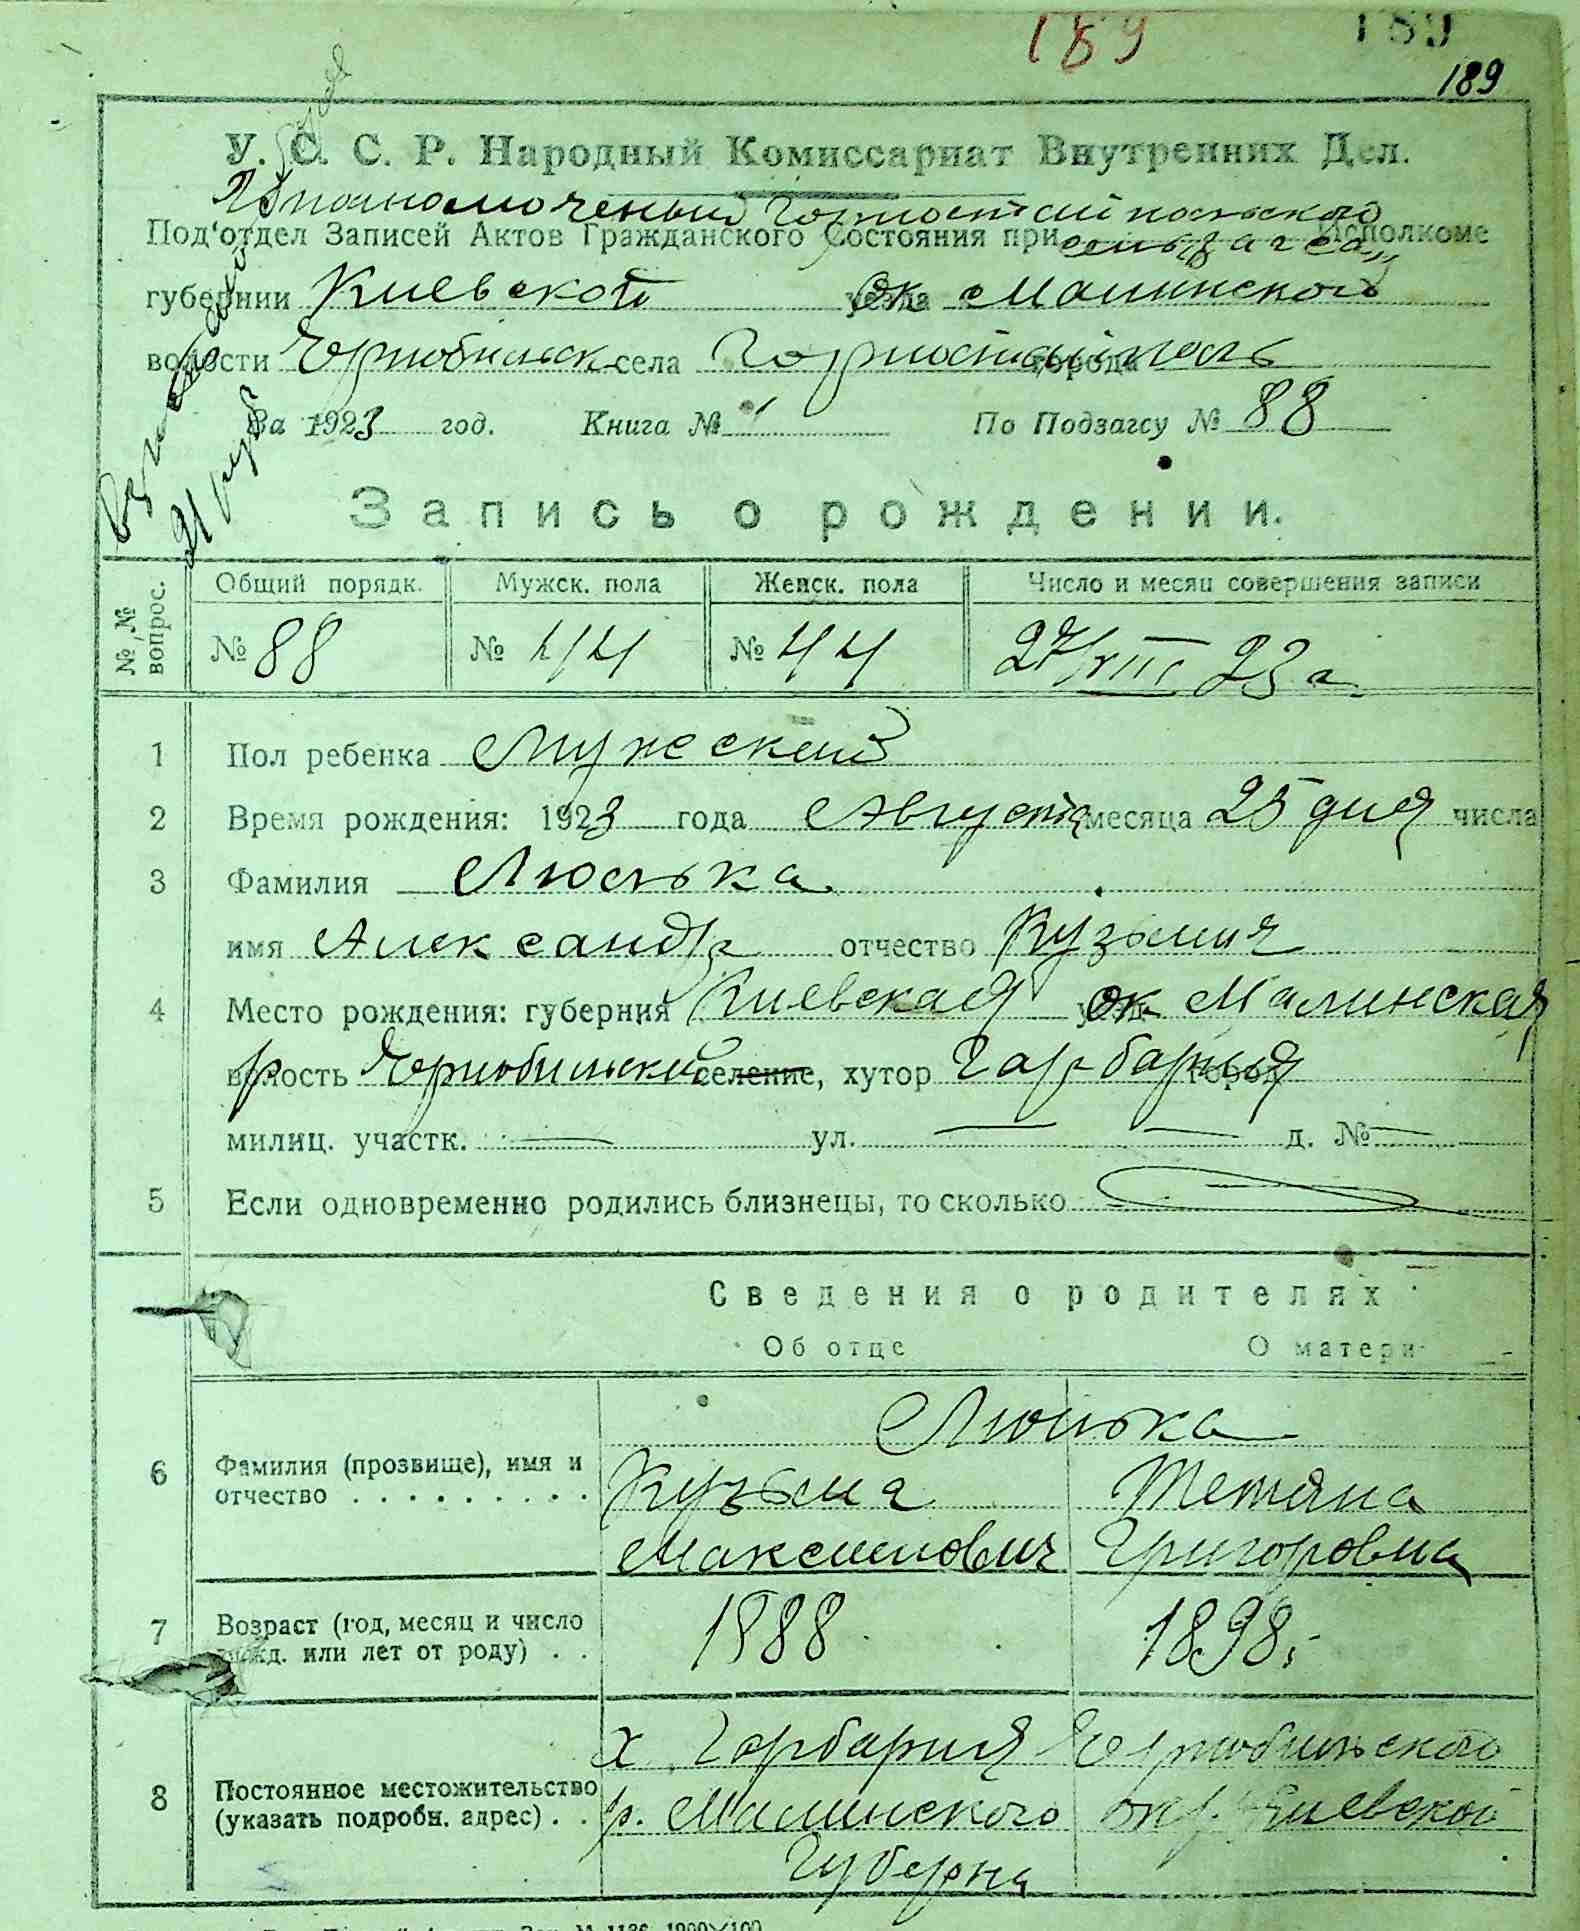 189 189
189
У. С. С. Р. Народный Комиссариат Внутренних Дел.
Под'отдел Записей Актов Гражданского Состояния при Исполкоме
губернии Киевской уезда Ок Малинского
волости Чернобильск села Горностайполь города
За 1923 год. Книга № 1 По Подзагсу № 88
21 руб
Запись о рождении.
№№ вопрос.
Общий порядк. Мужск. пола Женск. пола Число и месяц совершения записи
№ 88 № 44 № 44 27/VIII 23 г.
1 Пол ребенка Мужеский
2 Время рождения: 1923 года Августа месяца 25 дня числа
3 Фамилия Люлька
имя Александр отчество Кузьмич
4 Место рождения: губерния Киевская ок Малинская
волость р Чернобильский селение, хутор Гарбария город
милиц. участк. — ул. — — д. № —
5 Если одновременно родились близнецы, то сколько
Сведения о родителях
Об отце О матери
Люлька
6 Фамилия (прозвище), имя и Кузьма Тетяна
отчество . . . . . . . . . Максимович Григоровна
7 Возраст (год, месяц и число 1888 1898.
рожд. или лет от роду) . .
х. Гарбария Чернобильского
8 Постоянное местожительство р. Малинского окр. Киевской
(указать подробн. адрес) . .
Губерни